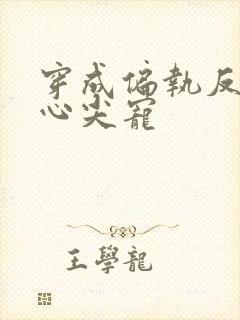 穿成偏執反
心尖寵
王學龍